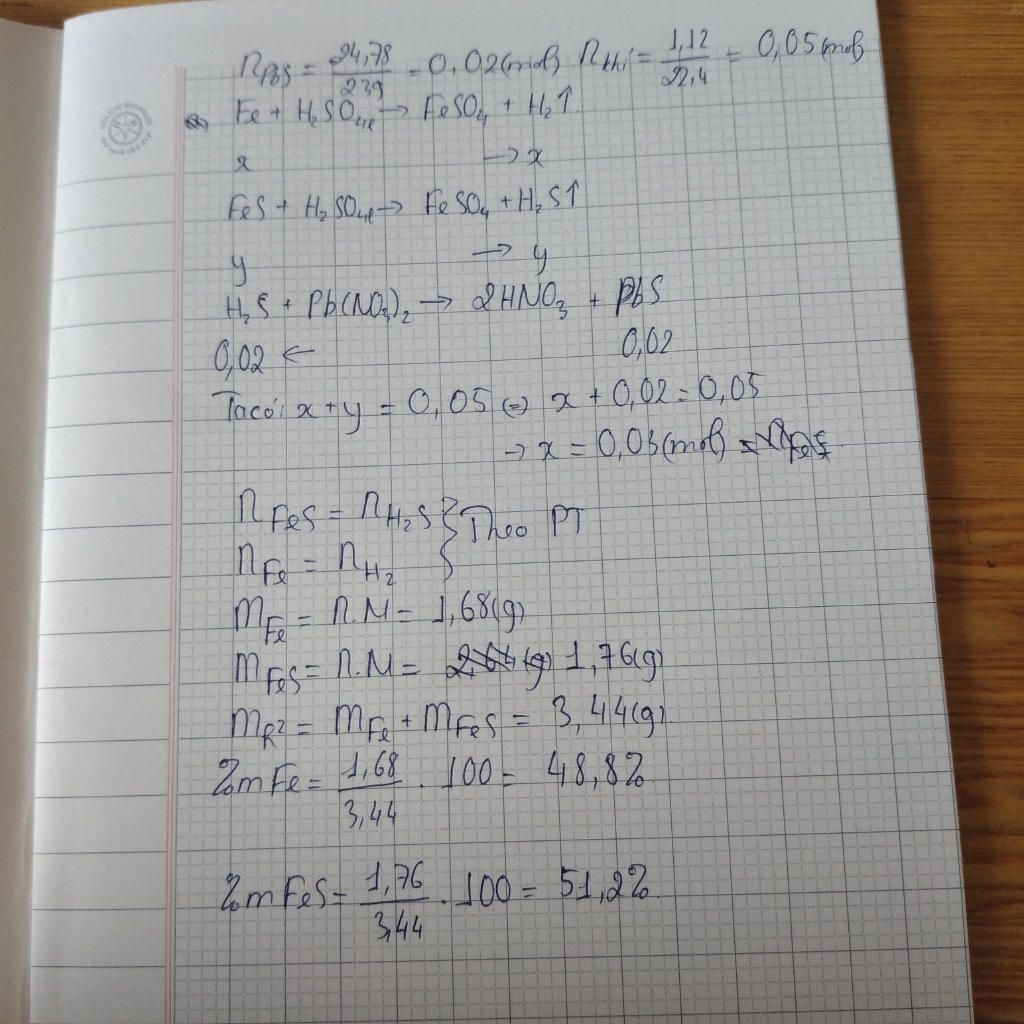 nPbS = 24,78/239 = 0,02(mol) nkhí = 1,12/22,4 = 0,05(mol)
Fe + H2SO4l → FeSO4 + H2↑
x → x
FeS + H2SO4l → FeSO4 + H2S↑
y → y
H2S + Pb(NO3)2 → 2HNO3 + PbS
0,02 ← 0,02
Ta có: x + y = 0,05 (=) x + 0,02 = 0,05
→ x = 0,03(mol)
nFeS = nH2S } Theo PT
nFe = nH2
mFe = n.M = 1,68(g)
mFeS = n.M = 2,64(g) 1,76(g)
mR2 = mFe + mFeS = 3,44(g)
%mFe = 1,68/3,44 . 100 = 48,8%
%mFeS = 1,76/3,44 . 100 = 51,2%